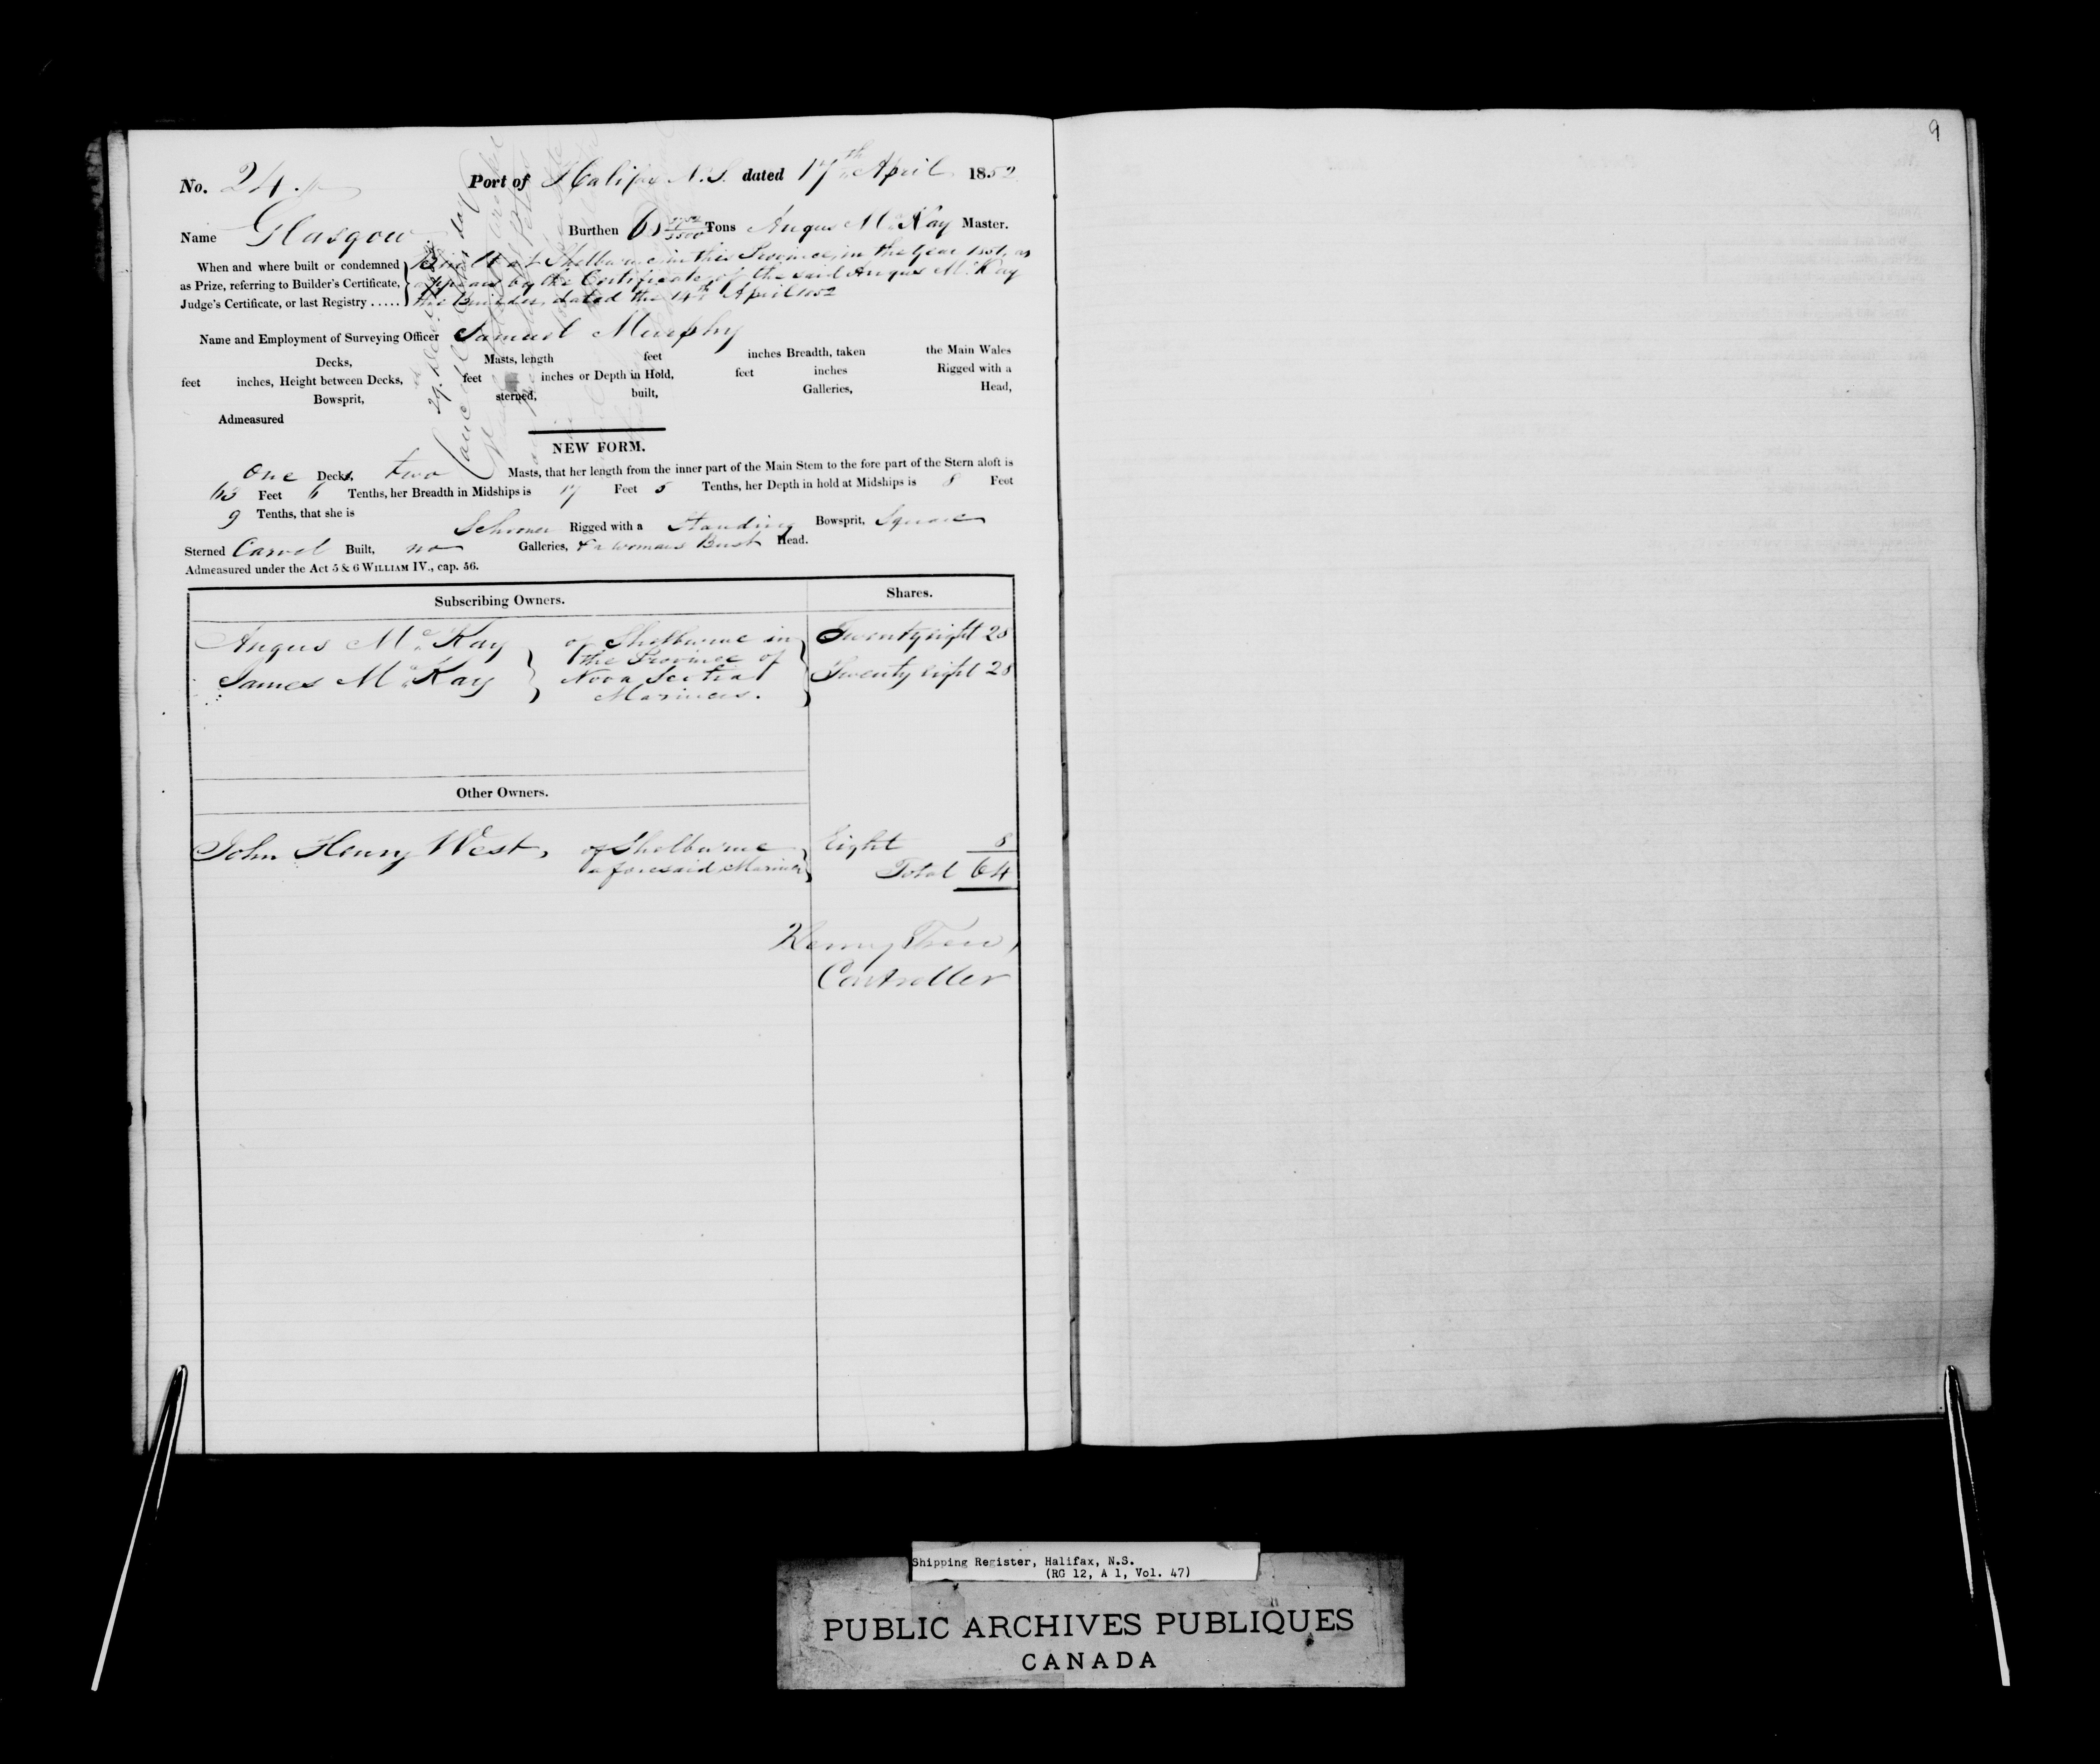 9
No. 24.
Port of Halifax N.S. dated 17th April 1852
Name Glasgow Burthen Tons Angus McKay Master.
When and where built or condemned
as Prize, referring to Builder's Certificate,
Judge's Certificate, or last Registry .....
Built at Shelburne in this Province, in the Year 1851, as
appears by the Certificate of the said Angus McKay
the Builder, dated the 14th April 1852
Name and Employment of Surveying Officer Samuel Murphy
Decks, Masts, length feet inches Breadth, taken the Main Wales
feet inches, Height between Decks, feet inches or Depth in Hold, feet inches Rigged with a
Bowsprit, sterned, built, Galleries, Head,
Admeasured
NEW FORM.
One Decks, two Masts, that her length from the inner part of the Main Stem to the fore part of the Stern aloft is
63 Feet 6 Tenths, her Breadth in Midships is 17 Feet 5 Tenths, her Depth in hold at Midships is 8 Feet
9 Tenths, that she is
Schooner Rigged with a Standing Bowsprit, Square
Sterned Carvel Built, no Galleries, & a womans Bust Head.
Admeasured under the Act 5 & 6 WILLIAM IV., cap. 56.
Subscribing Owners. Shares.
Angus McKay
James McKay
of Shelburne in
the Province of
Nova Scotia
Mariners.
Twenty eight 28
Twenty eight 28
Other Owners.
John Henry West, of Shelburne
aforesaid Mariner
Eight 8
Total 64
Henry
Controller
Shipping Register, Halifax, N.S.
(RG 12, A 1, Vol. 47)
PUBLIC ARCHIVES PUBLIQUES
CANADA